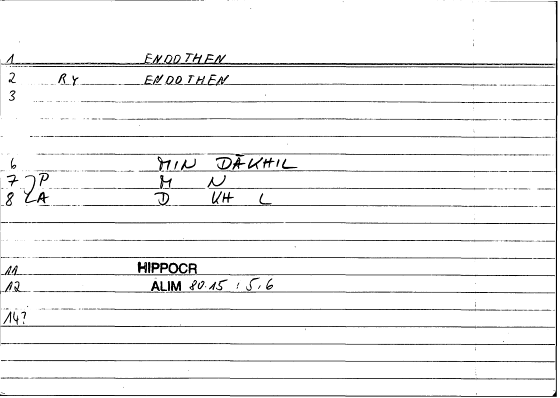 1 ENDOTHEN
2 RY ENDOTHEN
3
6 MIN DĀKHIL
7 P M N
8 A D KH L
11 HIPPOCR
12 ALIM 80.15 : 5,6
14?